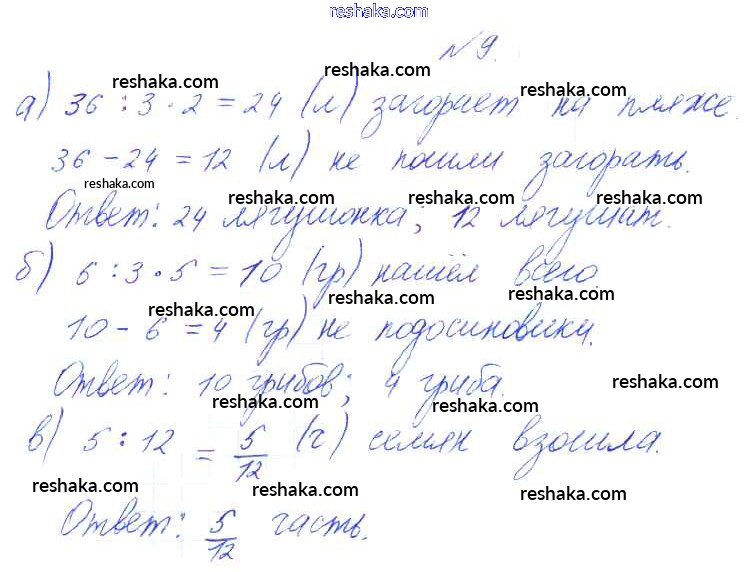 reshaka.com
№ 9.
reshaka.com
reshaka.com reshaka.com
а) 36 : 3 · 2 = 24 (л) загорает на пляже.
reshaka.com reshaka.com
36 – 24 = 12 (л) не пошли загорать.
reshaka.com
reshaka.com reshaka.com reshaka.com
Ответ: 24 лягушонка; 12 лягушат.
б) 6 : 3 · 5 = 10 (гр) нашёл всего.
reshaka.com reshaka.com reshaka.com
10 – 6 = 4 (гр) не подосиновики.
Ответ: 10 грибов; 4 гриба.
reshaka.com reshaka.com reshaka.com
в) 5 : 12 = 5/12 (ч) семян взошла.
reshaka.com reshaka.com reshaka.com
Ответ: 5/12 часть.